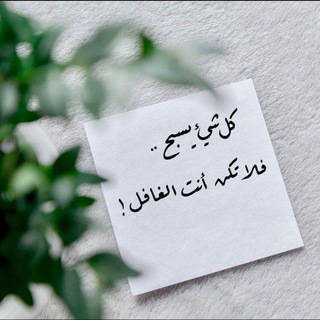 كل شئ يسبح ..
فلا تكن أنت الغافل !